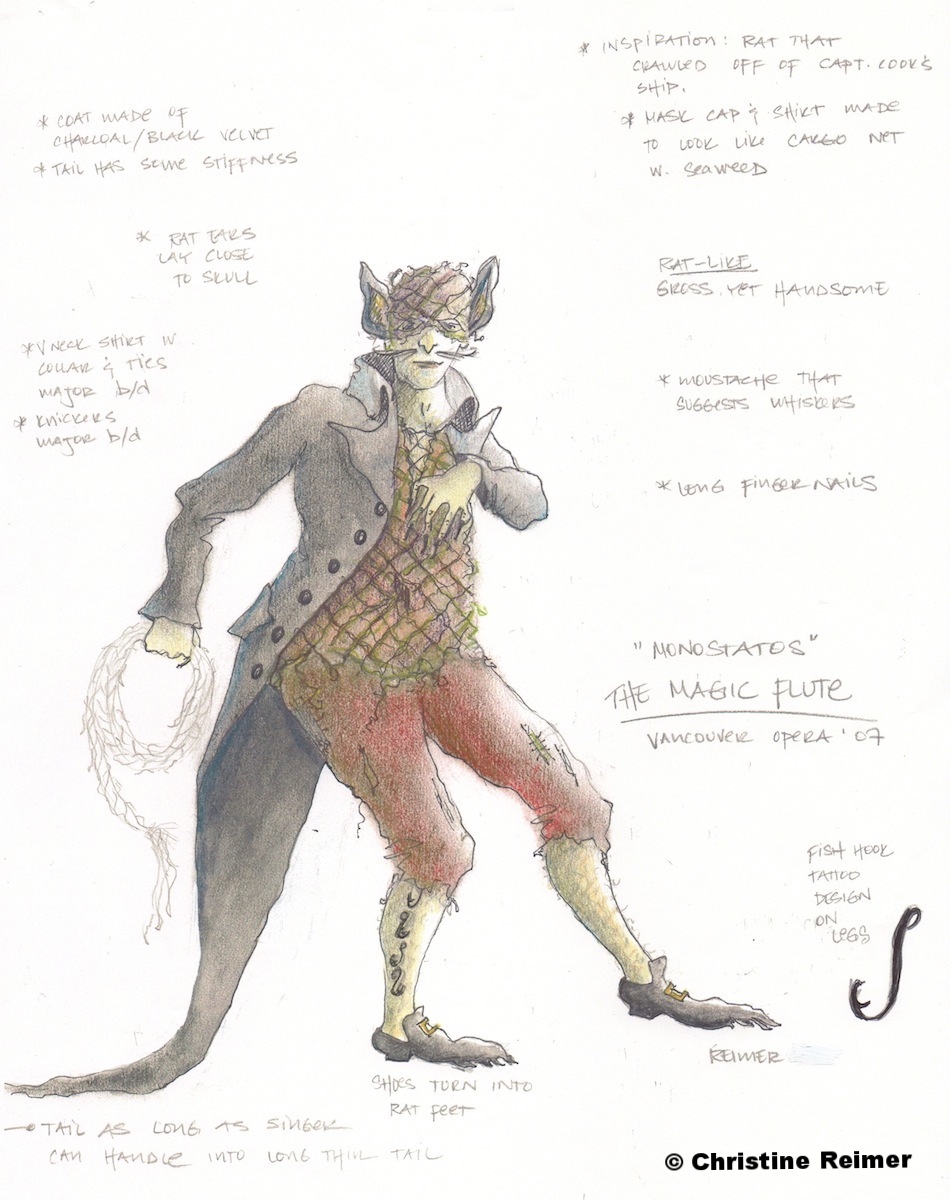 * INSPIRATION: RAT THAT
CRAWLED OFF OF CAPT. COOK'S
SHIP.
* MASK CAP & SHIRT MADE
TO LOOK LIKE CARGO NET
W. SEAWEED
* COAT MADE OF
CHARCOAL/BLACK VELVET
* TAIL HAS SOME STIFFNESS
* RAT EARS
LAY CLOSE
TO SKULL
RAT-LIKE
GROSS. YET HANDSOME
* V NECK SHIRT W
COLLAR & TIES
MAJOR b/d
* KNICKERS
MAJOR b/d
* MOUSTACHE THAT
SUGGESTS WHISKERS
* LONG FINGERNAILS
"MONOSTATOS"
THE MAGIC FLUTE
VANCOUVER OPERA '07
FISH HOOK
TATTOO
DESIGN
ON
LEGS
REIMER
SHOES TURN INTO
RAT FEET
TAIL AS LONG AS SINGER
CAN HANDLE INTO LONG THIN TAIL
© Christine Reimer